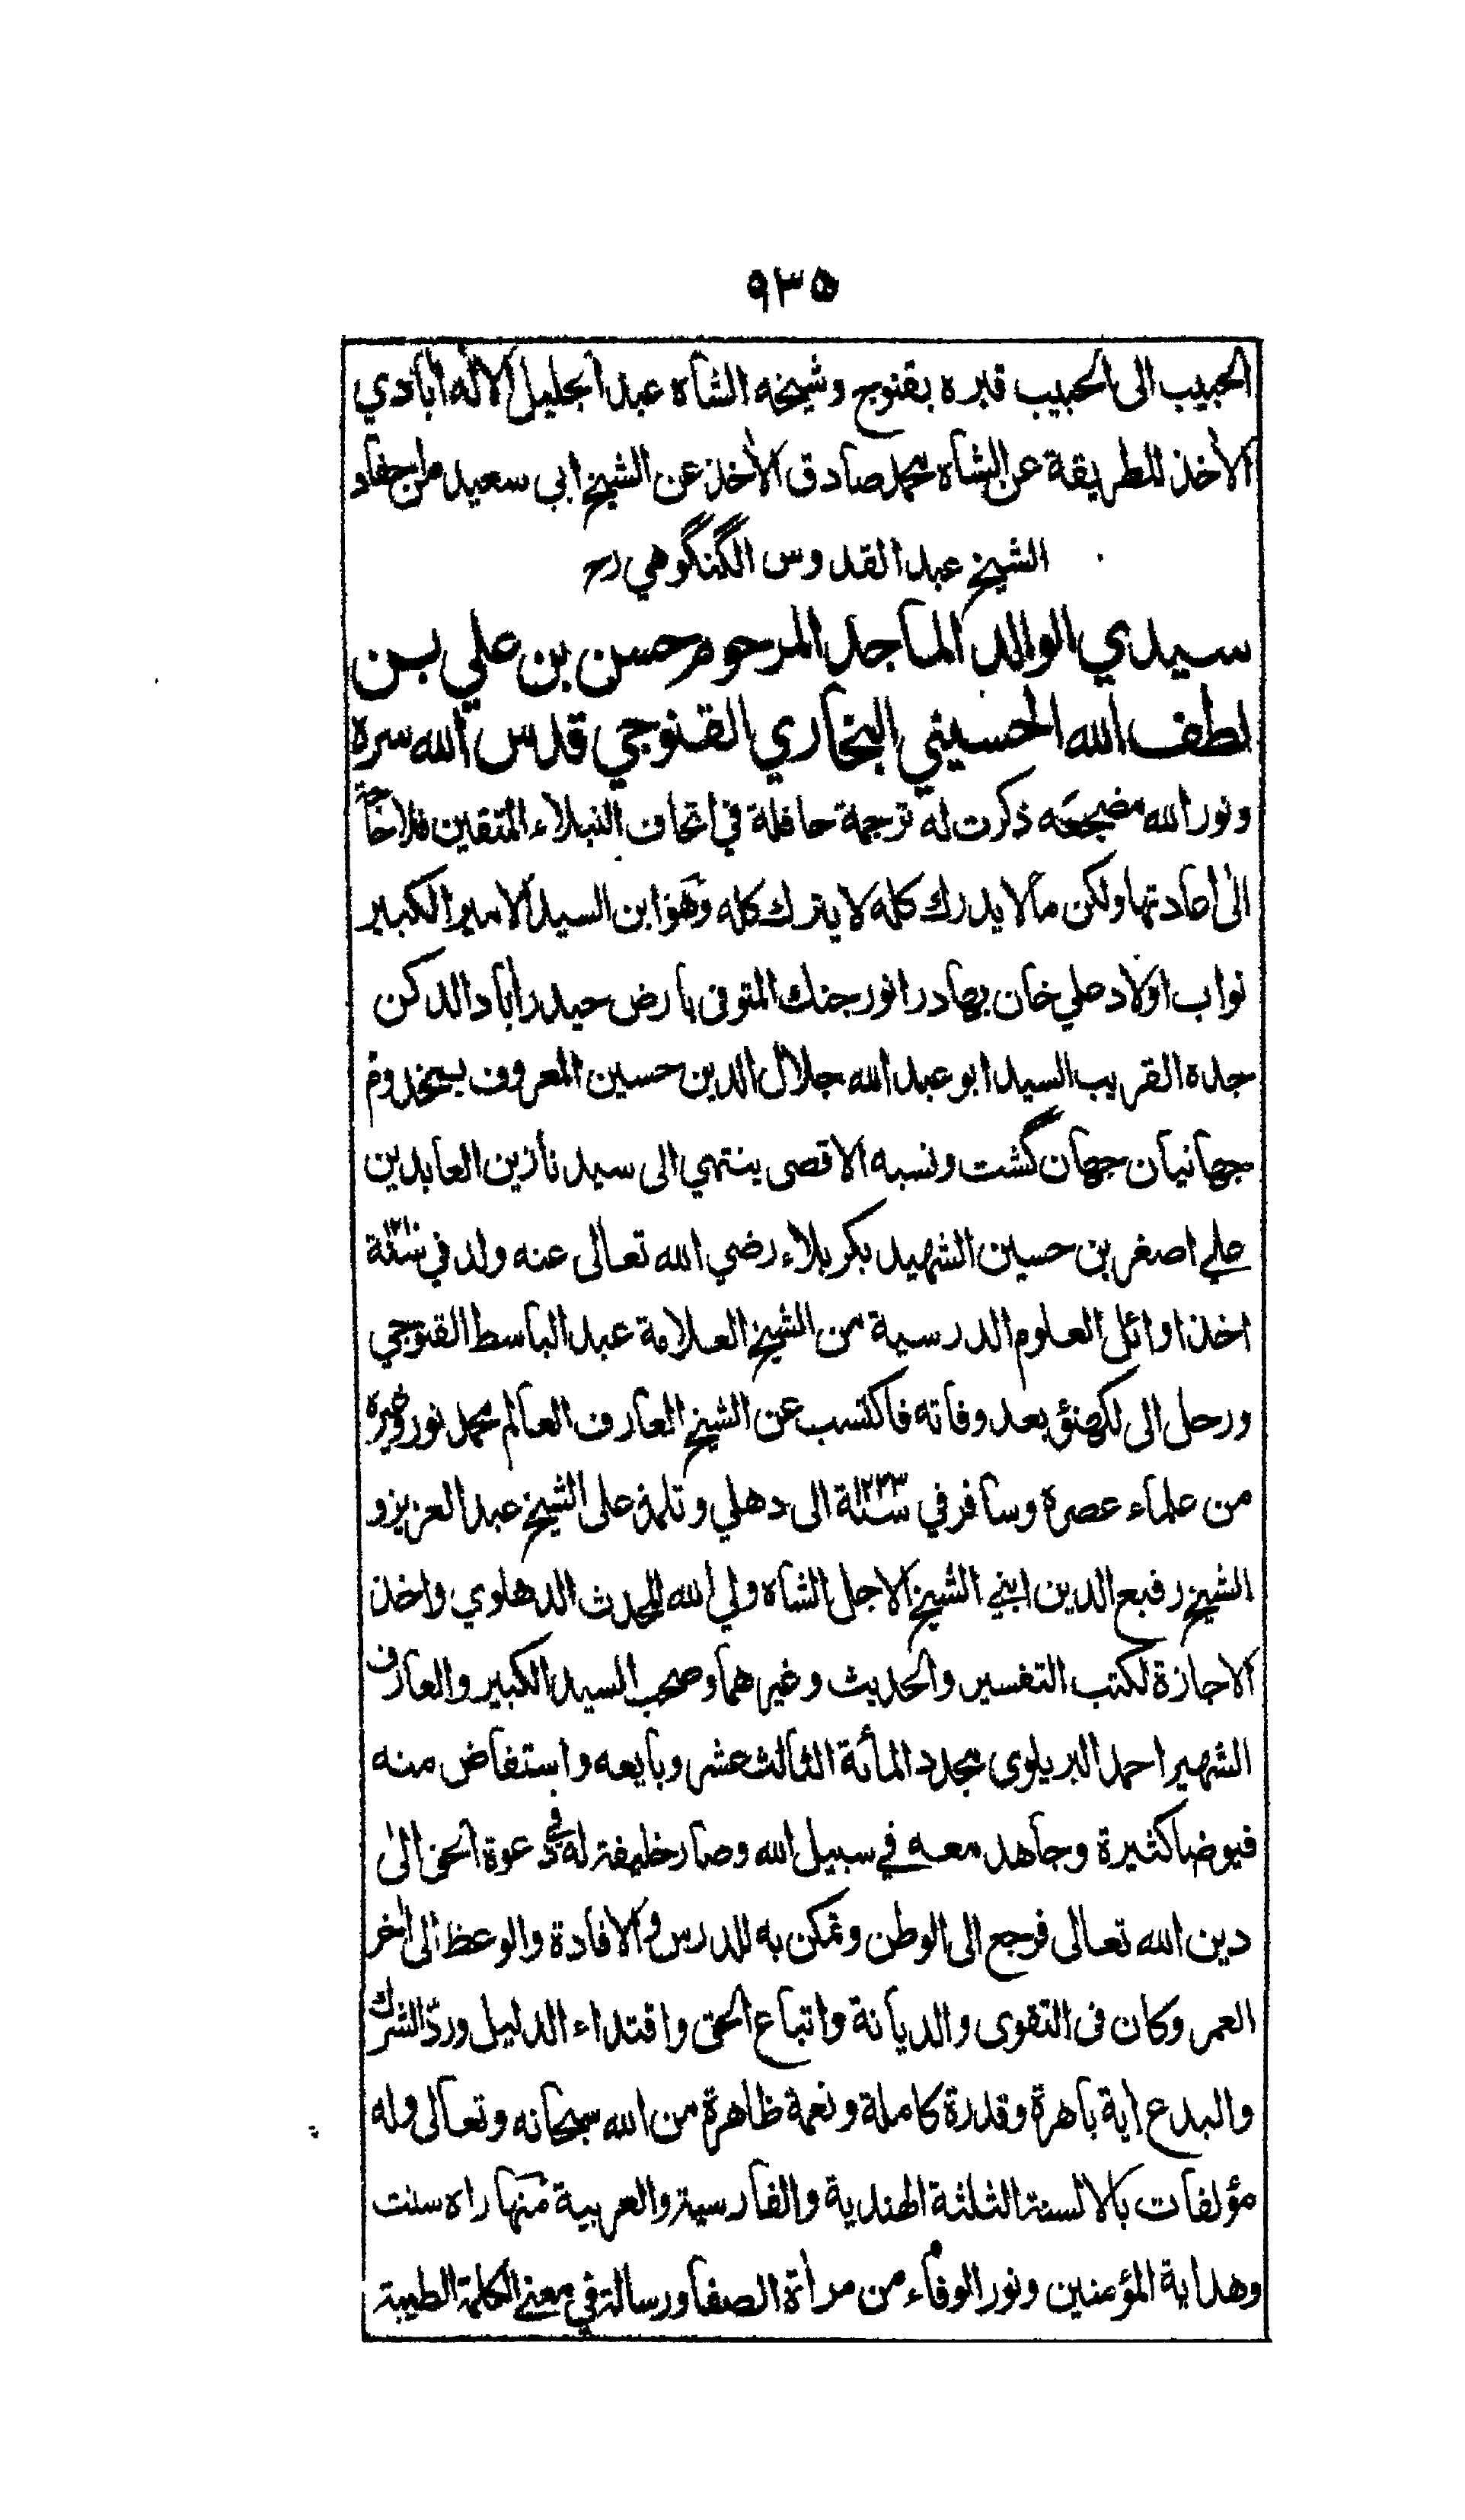 ٩٣٥
الحبيب الى الحبيب قبره بقنوج وشيخه الشاه عبد الجليل الاله ابادي
الأخذ للطريقة عن الشاه محمد صادق الأخذ عن الشيخ ابي سعيد من احفاد
الشيخ عبد القدوس الگنگوهي رح
سيدي الوالد الماجد المرحوم حسن بن علي بن
لطف الله الحسيني البخاري القنوجي قدس الله سره
ونور الله مضجعه ذكرت له ترجمة حافلة في اتحاف النبلاء المتقين فلا حاجة
الى اعادتها ولكن ما لا يدرك كله لا يترك كله وهو ابن السيد الامير الكبير
نواب اولاد علي خان بهادر انور جنك المتوفى بارض حيدراباد الدكن
جده القريب السيد ابو عبد الله جلال الدين حسين المعروف بمخدوم
جهانيان جهان گشت ونسبه الاقصى ينتهي الى سيدنا زين العابدين
علي اصغر بن حسين الشهيد بكربلاء رضي الله تعالى عنه ولد في سنة
اخذ اوائل العلوم الدرسية من الشيخ العلامة عبد الباسط القنوجي
ورحل الى لكهنؤ بعد وفاته فاكتسب عن الشيخ العارف العالم محمد نور وغيره
من علماء عصره وسافر في سنة ١٢٣٣ الى دهلي وتلمذ على الشيخ عبد العزيز و
الشيخ رفيع الدين ابني الشيخ الاجل الشاه ولي الله المحدث الدهلوي واخذ
الاجازة لكتب التفسير والحديث وغيرهما وصحب السيد الكبير والعارف
الشهير احمد البريلوى مجدد المأئة الثالث عشر وبايعه واستفاض منه
فيوضا كثيرة وجاهد معه في سبيل الله وصار خليفة له في دعوة الخق الى
دين الله تعالى فرجع الى الوطن وتمكن به للدرس والافادة والوعظ الى اخر
العمر وكان فى التقوى والديانة واتباع الحق واقتداء الدليل ورد الشرك
والبدع اية باهرة وقدرة كاملة ونعمة ظاهرة من الله سبحانه وتعالى وله
مؤلفات بالالسنة الثلثة الهندية والفارسية والعربية منها راه سنت
وهداية المؤمنين ونور الوفاء من مراة الصفا ورسالة في معنى الكلمة الطيبة